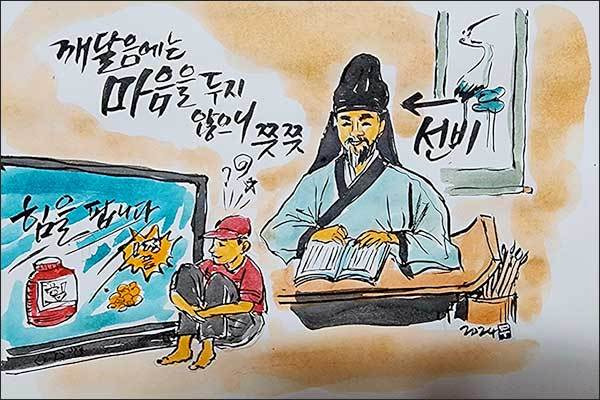 깨달음에는
마음을 두지
않으니
쯧쯧
선비
힘을 팝니다
?
2024